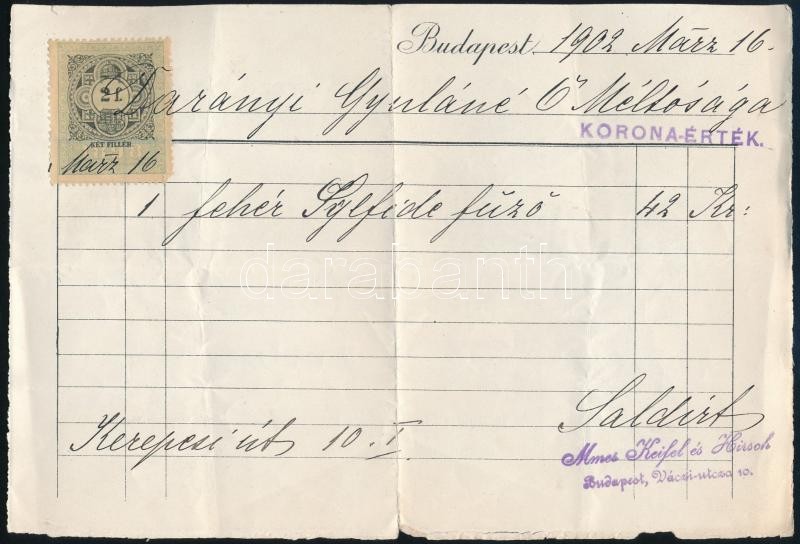 Budapest 1902 Márz 16.
2 f.
Darányi Gyuláné Ő Méltósága
KORONA-ÉRTÉK.
KÉT FILLÉR
Márz 16
1 fehér Sylfide fűző 42 Kr:
darabanth
Saldirt
Kerepesi út 10. I.
Mmes Keifel és Hirsch
Budapest, Váczi-utcza 10.